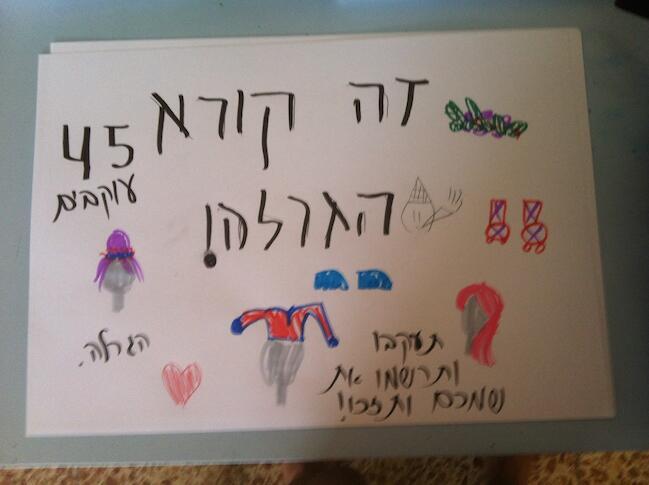 זה קורא
45
עוקבים
הגרלה!
הגרלה.
תעקבו
ותרשמו את
שמכם ותזכו!